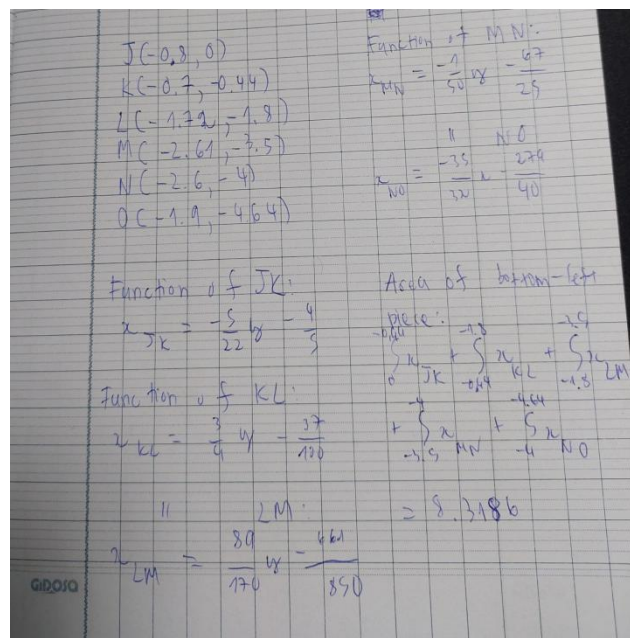 J(-0,8, 0)
K(-0.7, -0.44)
L(-1.72, -1.8)
M(-2.61, -3.5)
N(-2.6, -4)
O(-1.9, -4.64)
Function of JK:
x_JK = -5/22 y - 4/5
Function of KL:
x_KL = 3/4 y - 37/100
" LM:
x_LM = 89/170 y - 661/850
GIDOSO
Function of MN:
x_MN = -1/50 y - 67/25
" NO
x_NO = -35/32 x - 279/40
Area of bottom-left
piece:
∫_0^-0.44 x_JK + ∫_-0.44^-1.8 x_KL + ∫_-1.8^-3.5 x_LM
+ ∫_-3.5^-4 x_MN + ∫_-4^-4.64 x_NO
= 8.3186